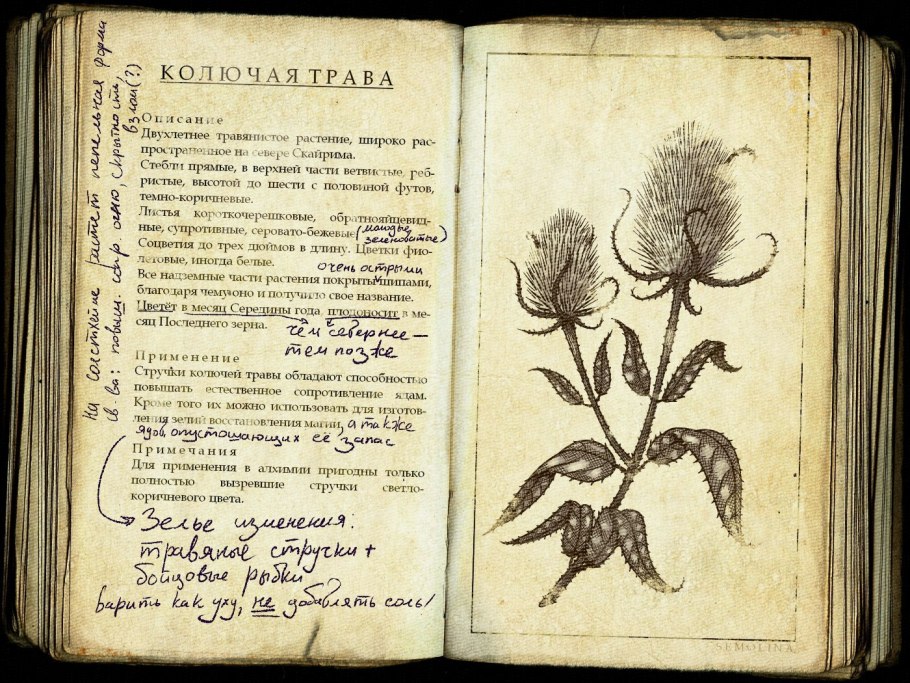 КОЛЮЧАЯ ТРАВА
Описание
Двухлетнее травянистое растение, широко рас-
пространенное на севере Скайрима.
Стебли прямые, в верхней части ветвистые, реб-
ристые, высотой до шести с половиной футов,
темно-коричневые.
Листья короткочерешковые, обратнояйцевид-
ные, супротивные, серовато-бежевые (молодые
зеленоватые)
Соцветия до трех дюймов в длину. Цветки фио-
летовые, иногда белые.
очень острыми
Все надземные части растения покрыты шипами,
благодаря чему оно и получило свое название.
Цветёт в месяц Середины года, плодоносит в ме-
сяц Последнего зерна.
чем севернее —
тем позже
Применение
Стручки колючей травы обладают способностью
повышать естественное сопротивление ядам.
Кроме того их можно использовать для изготов-
ления зелий восстановления магии, а также
ядов, опустошающих её запас
Примечания
Для применения в алхимии пригодны только
полностью вызревшие стручки светло-
коричневого цвета.
Зелье изменения:
травяные стручки +
бойцовые рыбки
варить как уху, не добавлять соль!
На Солстхейме растет пепельная форма
св-ва: повыш. сопр огню, скрытность,
взлом (?)
SEMOLINA